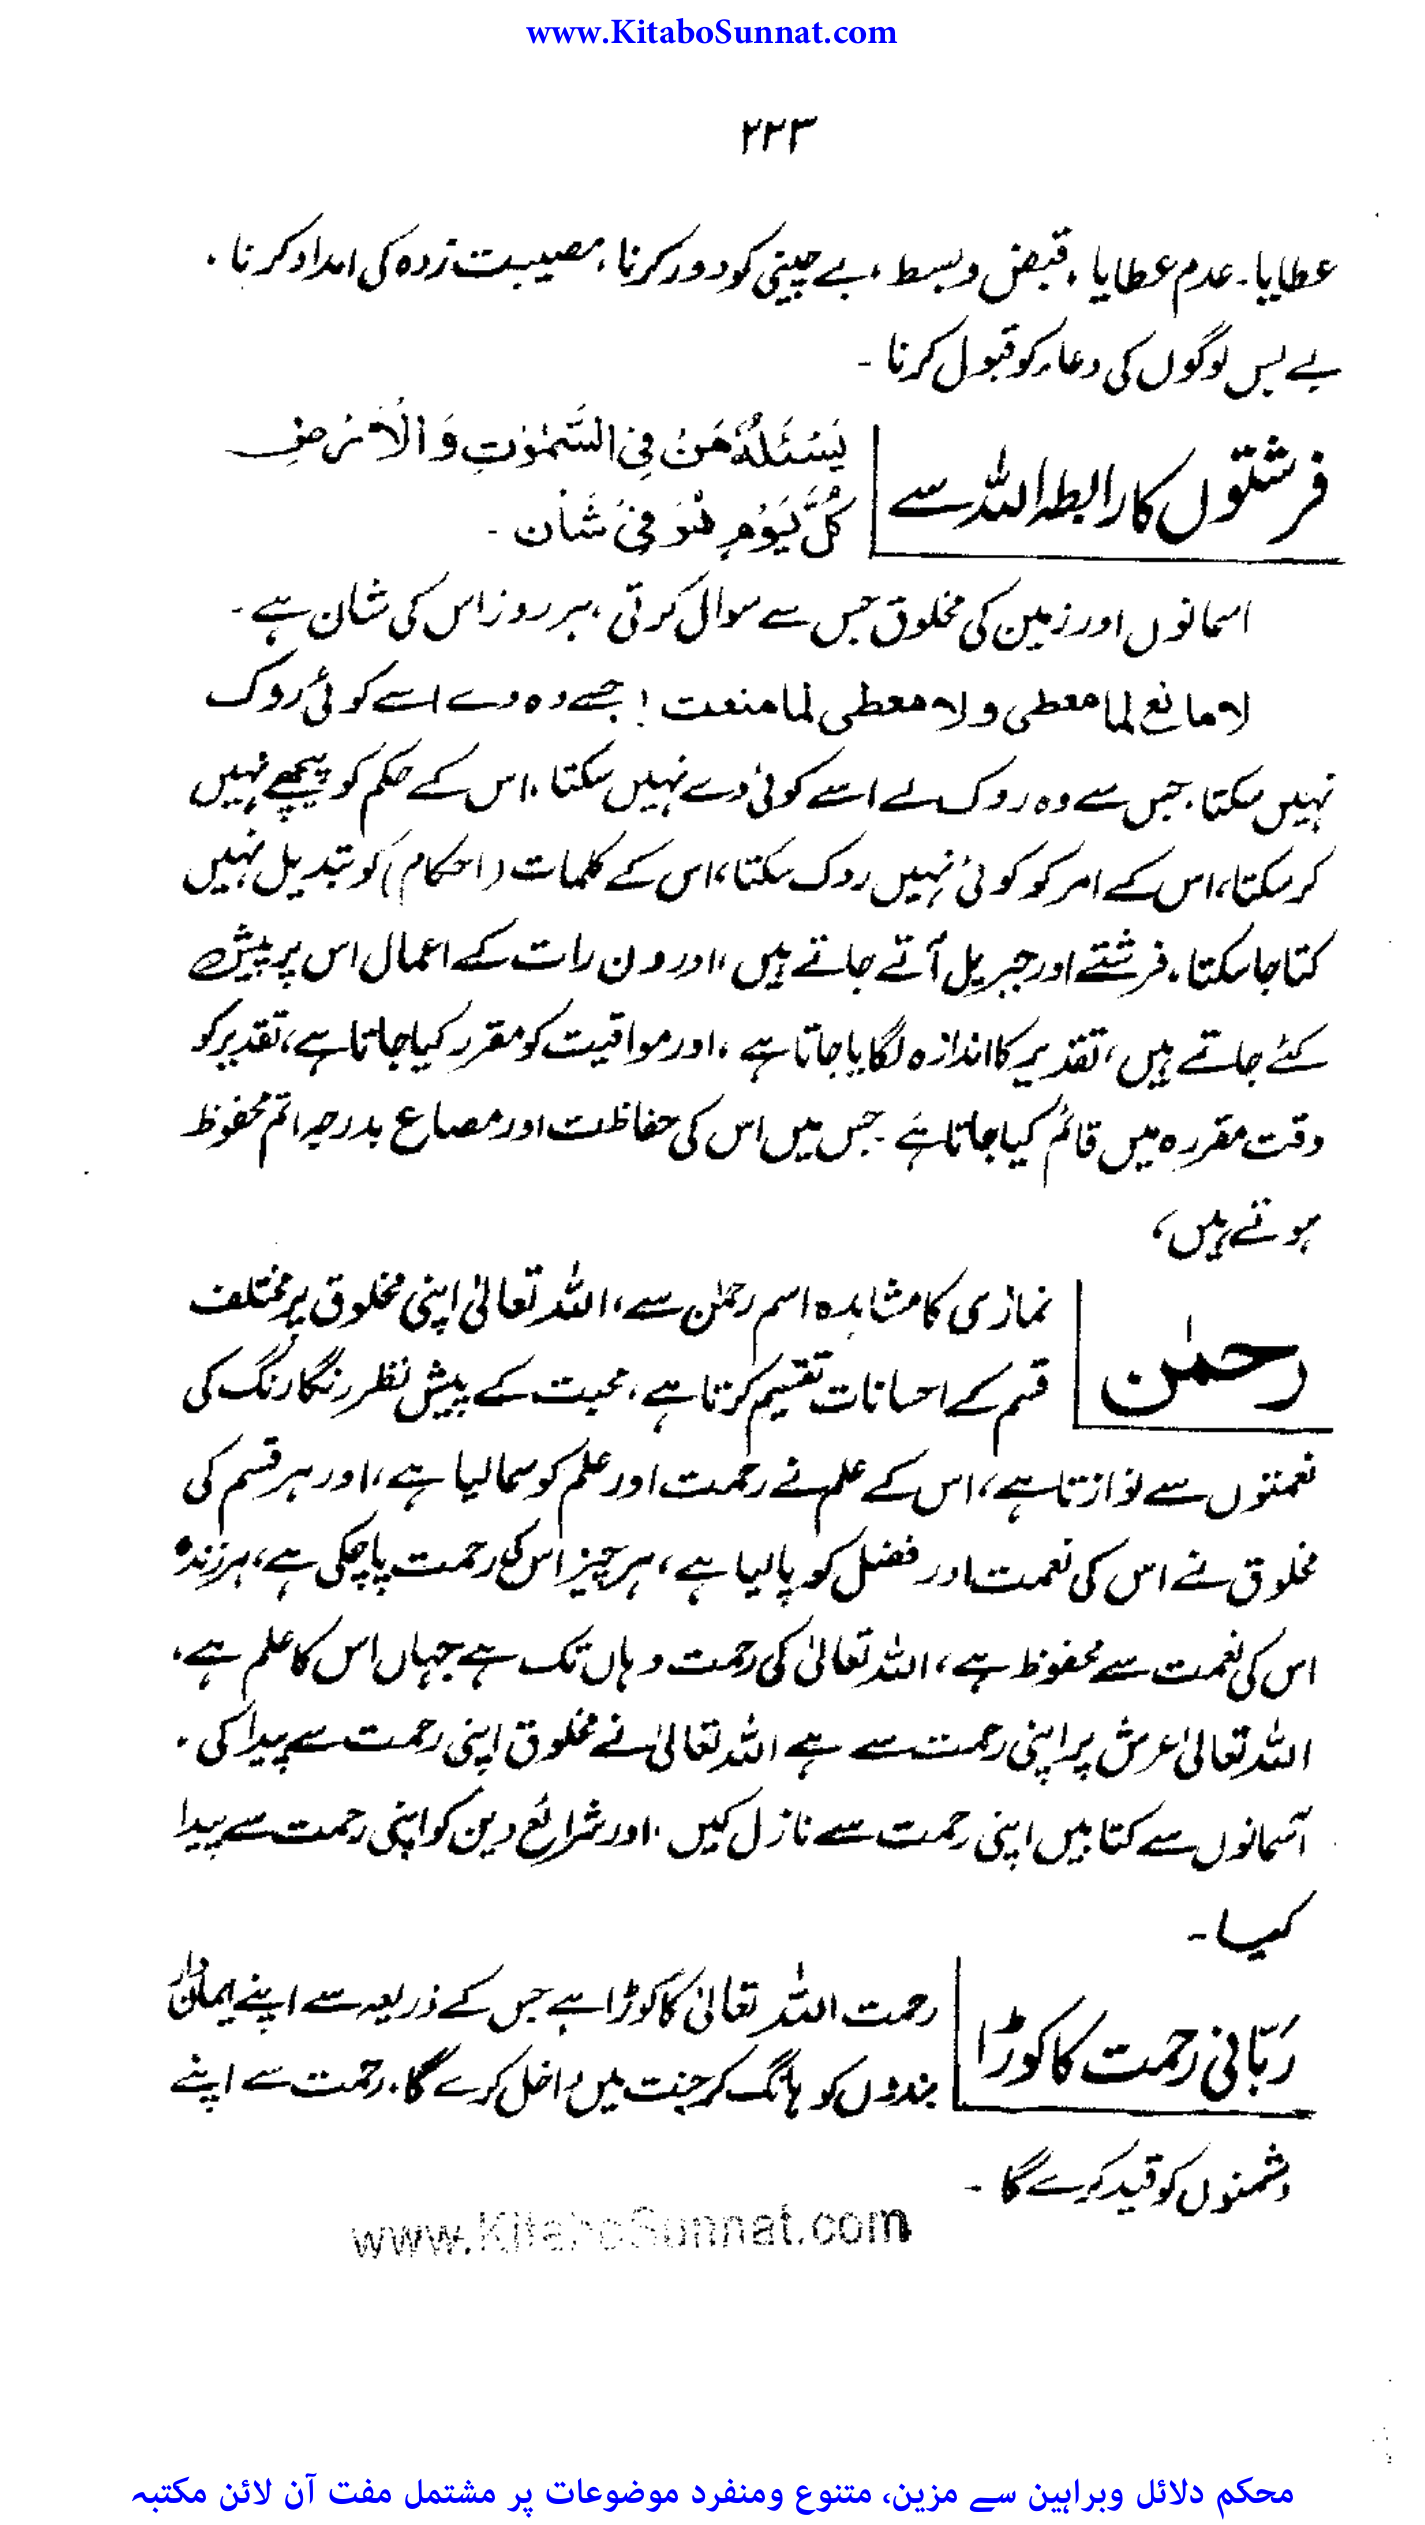 www.KitaboSunnat.com
۲۲۳
عطایا۔ عدم عطایا، قبض وبسط، بے چینی کو دور کرنا، مصیبت زدہ کی امداد کرنا،
بے بس لوگوں کی دعاء کو قبول کرنا ۔
فرشتوں کا رابطہ اللہ سے
يَسْئَلُهٗ مَنْ فِي السَّمٰوٰتِ وَ الْاَرْضِ
كُلَّ يَوْمٍ هُوَ فِيْ شَأْن ۔
اسمانوں اور زمین کی مخلوق جس سے سوال کرتی، ہر روز اس کی شان ہے ۔
لا مانع لما معطی ولا معطی لما منعت! جسے وہ دے اسے کوئی روک
نہیں سکتا، جس سے وہ روک لے اسے کوئی دے نہیں سکتا، اس کے حکم کو پیچھے نہیں
کر سکتا، اس کے امر کو کوئی نہیں روک سکتا، اس کے کلمات (احکام) کو تبدیل نہیں
کتا جا سکتا، فرشتے اور جبریل آتے جاتے ہیں، اور دن رات کے اعمال اس پر پیش
کئے جاتے ہیں، تقدیر کا اندازہ لگایا جاتا ہے، اور مواقیت کو مقرر کیا جاتا ہے، تقدیر کو
وقت مقررہ میں قائم کیا جاتا ہے ۔ جس میں اس کی حفاظت اور مصاع بدرجہ اتم محفوظ
ہوتے ہیں،
رحمٰن
نمازی کا مشاہدہ اسم رحمٰن سے، اللہ تعالیٰ اپنی مخلوق پر مختلف
قسم کے احسانات تقسیم کرتا ہے، محبت کے پیش نظر رنگا رنگ کی
نعمتوں سے نوازتا ہے، اس کے علم نے رحمت اور علم کو سما لیا ہے، اور ہر قسم کی
مخلوق نے اس کی نعمت اور فضل کو پا لیا ہے، ہر چیز اس کی رحمت پا چکی ہے، ہر زندہ
اس کی نعمت سے محفوظ ہے، اللہ تعالیٰ کی رحمت وہاں تک ہے جہاں اس کا علم ہے،
اللہ تعالیٰ عرش پر اپنی رحمت سے ہے اللہ تعالیٰ نے مخلوق اپنی رحمت سے پیدا کی ۔
آسمانوں سے کتابیں اپنی رحمت سے نازل کیں، اور شرائع دین کو اپنی رحمت سے پیدا
کیا ۔
رَبّانی رحمت کا کوڑا
رحمت اللہ تعالیٰ کا کوڑا ہے جس کے ذریعہ سے اپنے ایماندار
بندوں کو ہانک کر جنت میں داخل کرے گا، رحمت سے اپنے
دشمنوں کو قید کرے گا ۔
www.KitaboSunnat.com
محکم دلائل وبراہین سے مزین، متنوع ومنفرد موضوعات پر مشتمل مفت آن لائن مکتبہ